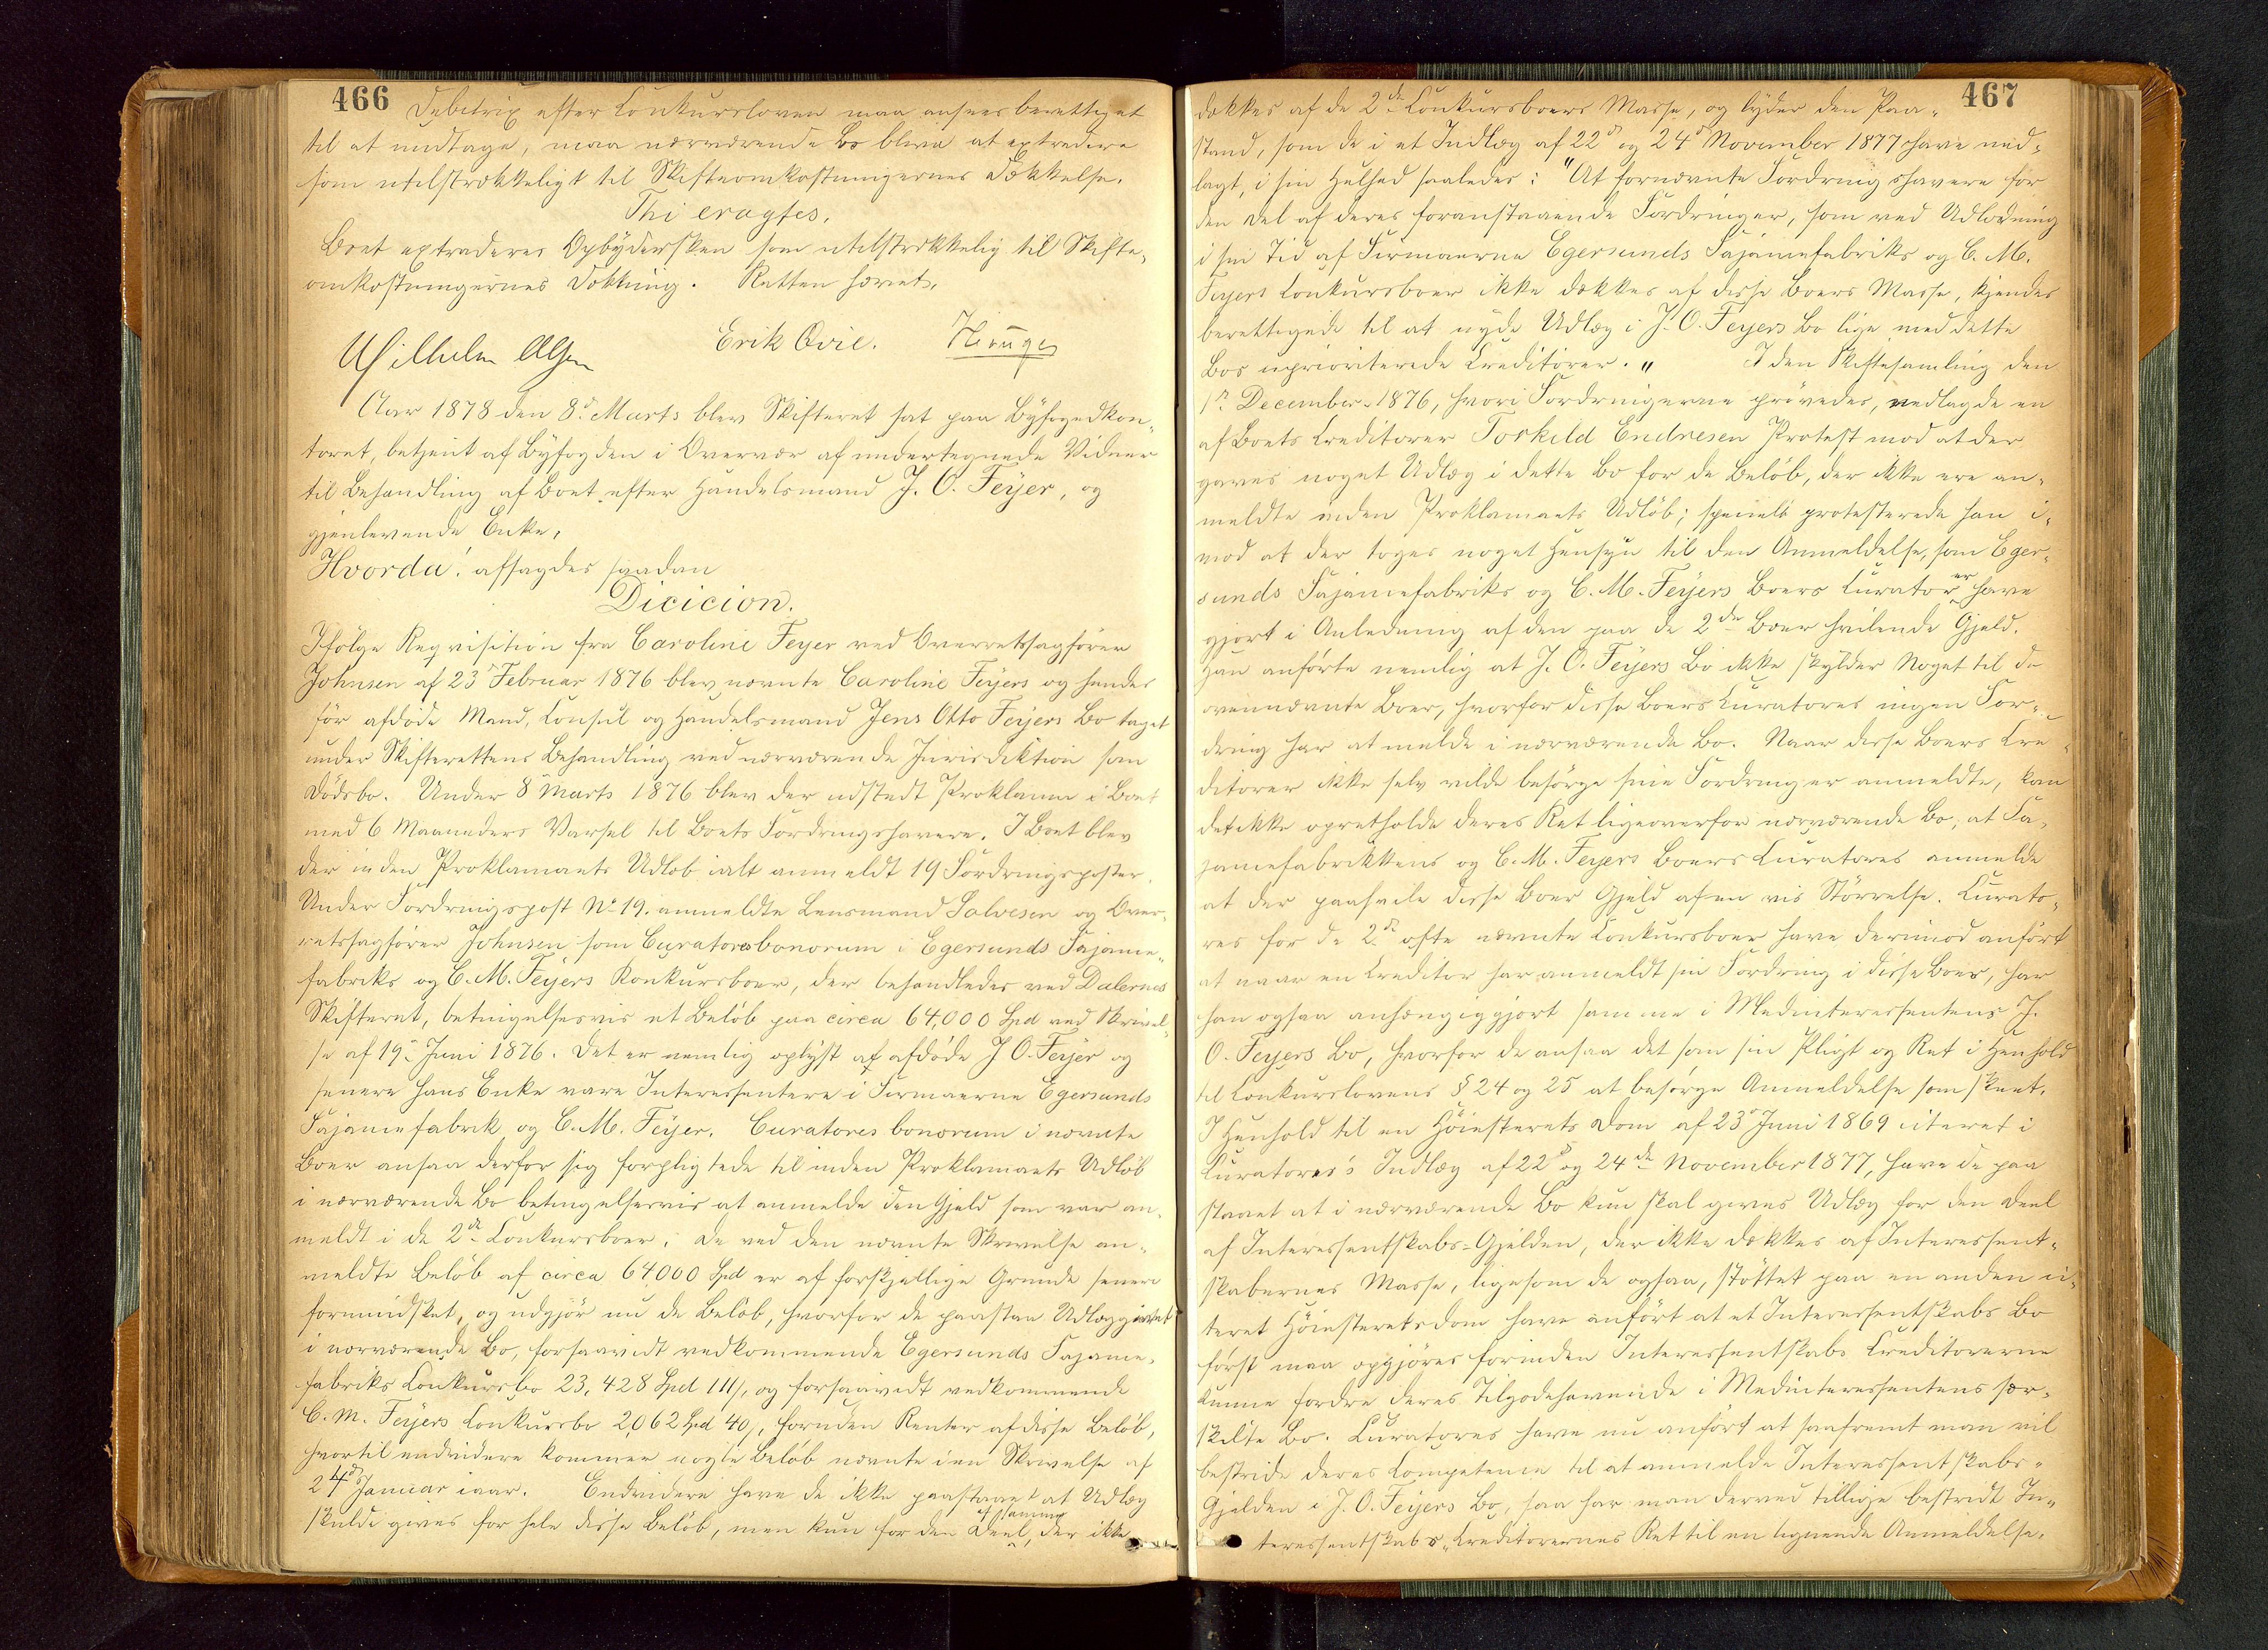 466
Debitrix efter Conkursloven maa ansees berettiget
til at undtage, maa nærværende Bo blive at extradere
som utilstrækkeligt til Skifteomkostningernes Dækkelse.
Thi eragtes.
Boet extraderes Opbydersken som utilstrækkelig til Skifte-
omkostningernes Dækning. Retten hævet.
Wilhelm Olsen Erik Qvie.
Aar 1878 den 8de Marts blev Skifteret sat paa Byfogedkon-
toret, betjent af Byfogden i Overvær af undertegnede Vidner
til Behandling af Boet efter Handelsmand J. O. Feyer, og
gjenlevende Enke,
Hvorda: afsagdes saadan
Dicicion.
Ifølge Reqvisition fra Caroline Feyer ved Overretssagfører
Johnsen af 23 Februar 1876 blev nævnte Caroline Feyers og hendes
før afdøde Mand, Consul og Handelsmand Jens Otto Feyers Bo taget
under Skifterettens Behandling ved nærværende Jurisdiktion som
Dødsbo. Under 8 Marts 1876 blev der udstedt Proklama i Boet
med 6 Maaneders Varsel til Boets Fordringshavere. I Boet blev
der inden Proklamaets Udløb ialt anmeldt 19 Fordringsposter.
Under Fordringspost No 19. anmeldte Lensmand Salvesen og Over-
retssagfører Johnsen som Curatores bonorum i Egersunds Fajance-
fabriks og C. M. Feyers Konkursboer, der behandledes ved Dalernes
Skifteret, betingelsesvis et Beløb paa circa 64,000 Spd ved Skrivel-
se af 19de Juni 1876. Det er nemlig oplyst at afdøde J. O. Feyer og
senere hans Enke vare Interessentere i Firmaerne Egersunds
Fajancefabrik og C. M. Feyer. Curatores bonorum i nævnte
Boer ansaa derfor sig forpligtede til inden Proklamaets Udløb
i nærværende Bo betingelsesvis at anmelde den Gjeld som var an-
meldt i de 2de Conkursboer. De ved den nævnte Skrivelse an-
meldte Beløb af circa 64000 Spd er af forskjellige Grunde senere
formindsket, og udgjør nu de Beløb, hvorfor de paastaa Udlæg givet
i nærværende Bo, forsaavidt vedkommende Egersunds Fajance-
fabriks Conkursbo 23,428 Spd 111/, og forsaavidt vedkommende
C. M. Feyers Conkursbo 2,062 Spd 40/, foruden Renter af disse Beløb,
hvortil endvidere kommer nogle Beløb nævnte i en Skrivelse af
24de Januar iaar. Endvidere have de ikke paastaaet at Udlæg
skulde gives for hele disse Beløb, men kun for den Deel af samme, der ikke
467
dækkes af de 2de Conkursboers Masse, og lyder den Paa-
stand, som de i et Indlæg af 22de og 24de November 1877 have ned-
lagt, i sin Helhed saaledes: "At fornævnte Fordringshavere for
den Del af deres foranstaaende Fordringer, som ved Udlodning
i sin Tid af Firmaerne Egersunds Fajancefabriks og C. M.
Feyers Conkursboer ikke dækkes af disse Boers Masse, kjendes
berettigede til at nyde Udlæg i J. O. Feyers Bo lige med dette
Bos uprioriterede Creditorer." I den Skiftesamling den
1ste December 1876, hvori Fordringerne prøvedes, nedlagde en
af Boets Creditorer Torkild Endresen Protest mod at der
gaves noget Udlæg i dette Bo for de Beløb, der ikke ere an-
meldte inden Proklamaets Udløb; specielt protesterede han i-
mod at der toges noget Hensyn til den Anmeldelse, som Eger-
sunds Fajancefabriks og C. M. Feyers Boers Curatorer have
gjort i Anledning af den paa de 2de Boer hvilende Gjeld.
Han anførte nemlig at J. O. Feyers Bo ikke skylder Noget til de
ovennævnte Boer, hvorfor disse Boers Curatores ingen For-
dring har at melde i nærværende Bo. Naar disse Boers Cre-
ditorer ikke selv vilde besørge sine Fordringer anmeldte, kan
det ikke opretholde deres Ret ligeoverfor nærværende Bo, at Fa-
jancefabrikkens og C. M. Feyers Boers Curatores anmelde
at der paahvile disse Boer Gjeld af en vis Størrelse. Curato-
res for de 2de ofte nævnte Conkursboer have derimod anført
at naar en Creditor har anmeldt sin Fordring i disse Boer, har
han ogsaa anhængiggjort samme i Medinteressentens J.
O. Feyers Bo, hvorfor de ansaa det som sin Pligt og Ret i Henhold
til Conkurslovens § 24 og 25 at besørge Anmeldelse som skeet.
I Henhold til en Høiesterets Dom af 23de Juni 1869 citeret i
Curatores's Indlæg af 22de og 24de November 1877, have de paa
staaet at i nærværende Bo kun skal gives Udlæg for den Deel
af Interessentskabs-Gjelden, der ikke dækkes af Interessent-
skabernes Masse, ligesom de ogsaa, støttet paa en anden ci-
teret Høiesteretsdom have anført at et Interessentskabs Bo
først maa opgjøres forinden Interessentskabs Creditorerne
kunne fordre deres Tilgodehavende i Medinteressentens sær-
skilte Bo. Curatores have nu anført at saafremt man vil
bestride deres Competence til at anmelde Interessentskabs-
Gjelden i J. O. Feyers Bo, saa har man derved tillige bestridt In-
teressentskabs-Creditorernes Ret til en lignende Anmeldelse.